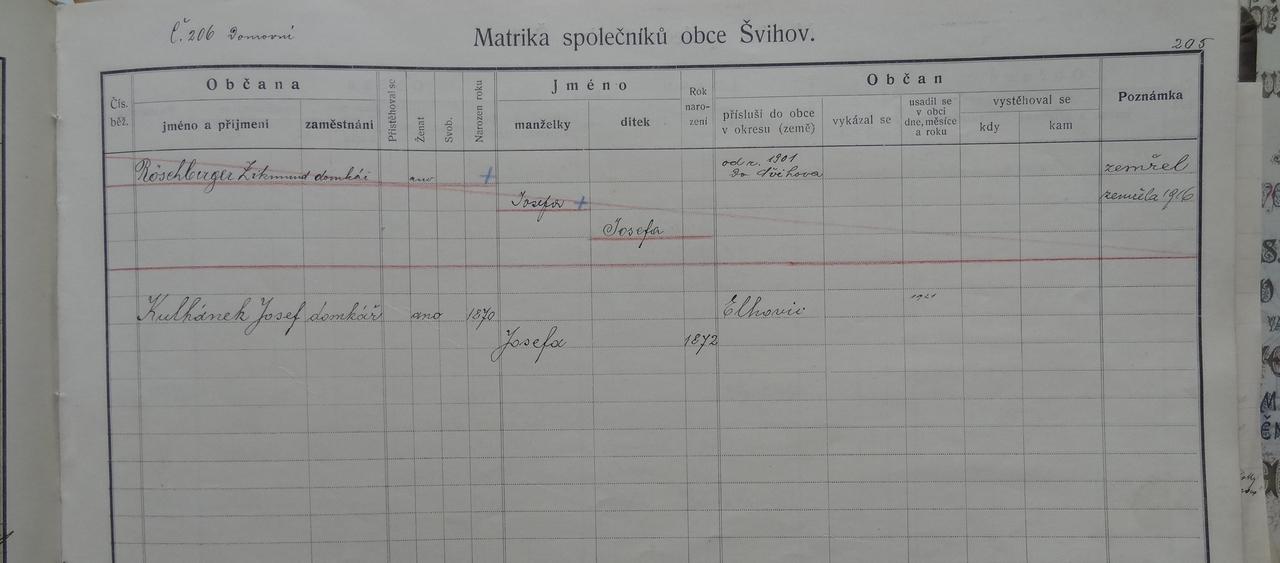 Č. 206 Domovní
Matrika společníků obce Švihov.
205
Čís. běž.
Občana
jméno a příjmení
zaměstnání
Přistěhoval se
Ženat
Svob.
Narozen roku
Jméno
manželky
dítek
Rok naro- zení
Občan
přísluší do obce v okresu (země)
vykázal se
usadil se v obci dne, měsíce a roku
vystěhoval se
kdy
kam
Poznámka
Röschberger Zikmund domkář ano + od r. 1901 do Švihova zemřel
Josefa + zemřela 1916
Josefa
Kulhánek Josef domkář ano 1870 Elhovic 1921
Josefa 1872